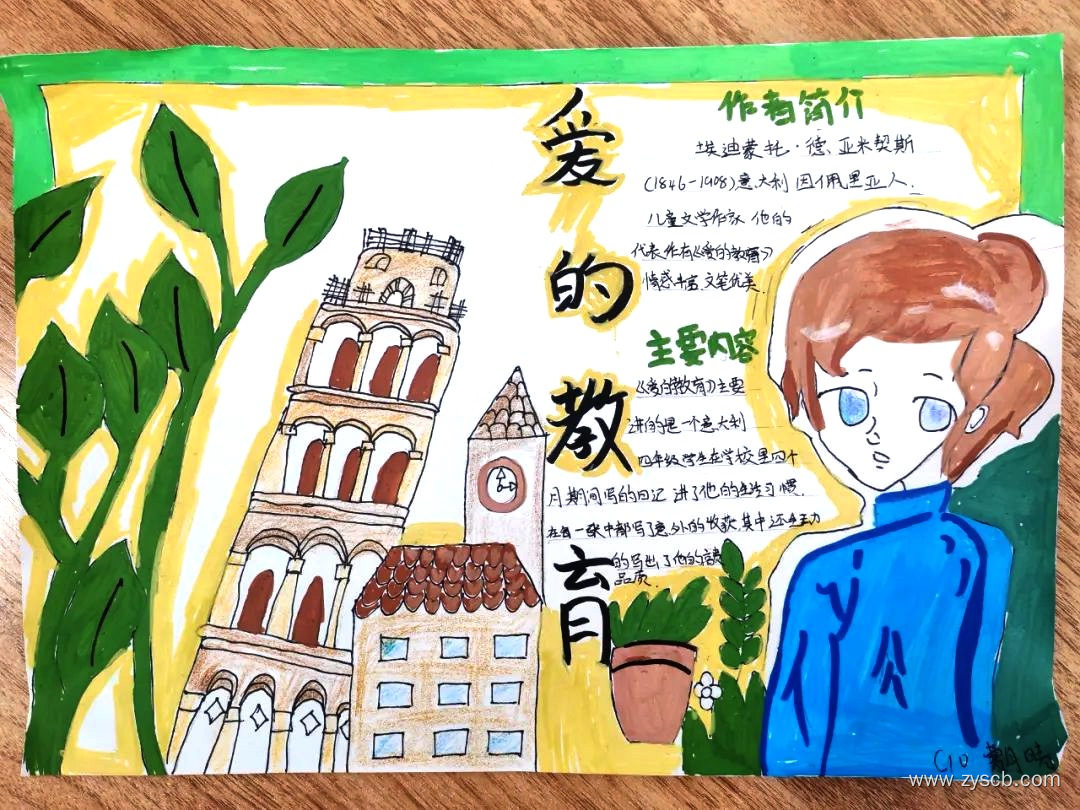 爱的教育
作者简介
埃迪蒙托·德·亚米契斯
(1846-1908)意大利因佩里亚人.
儿童文学作家 他的
代表作有《爱的教育》
情感丰富.文笔优美.
主要内容
《爱的教育》主要
讲的是一个意大利
四年级学生在学校里四个
月期间写的日记 讲了他的生活习惯.
在每一张中都写了意外的收获.其中还生动
的写出了他的
品质.
www.zyscb.com